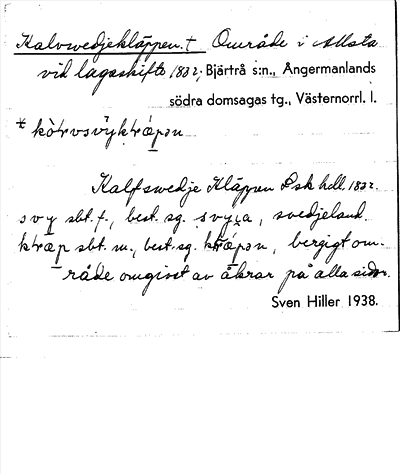 Kalvsvedjekläppen. † Område i Allsta
vid lagaskifte 1832; Bjärtrå s:n., Ångermanlands
södra domsagas tg., Västernorrl. l.
Kalfswedje Kläppen Lsk hdl. 1832.
svy sbt. f., best. sg. , svedjeland.
sbt. m., best. sg. , bergigt om-
råde omgivet av åkrar på alla sidor.
Sven Hiller 1938.